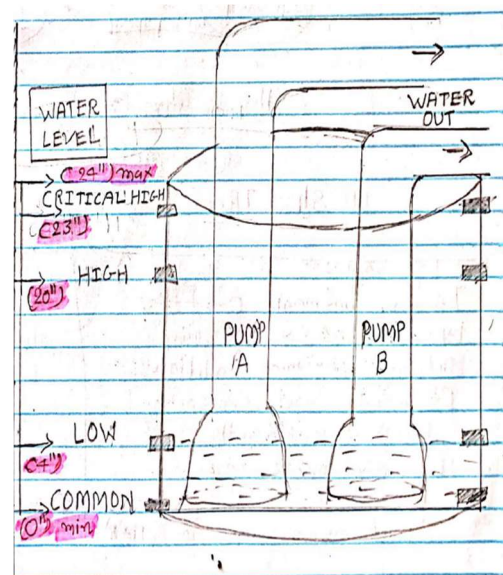 WATER
LEVEL
WATER
OUT
(24") max
CRITICAL HIGH
(23")
HIGH
(20")
PUMP
A
PUMP
B
LOW
(4")
COMMON
(0") min